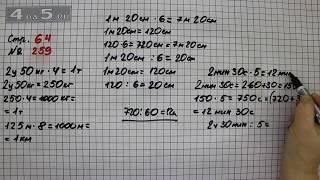 4 APOK
Стр. 64
№ 259
2ц 50кг · 4 = 1т
2ц 50кг = 250кг
250 · 4 = 1000кг =
= 1т
125м · 8 = 1000м =
= 1км
1м 20см · 6 = 7м 20см
1м 20см = 120см
120 · 6 = 720см = 7м 20см
1м 20см : 6 = 20см
1м 20см = 120см
120 : 6 = 20см
720 : 60 =
2мин 30с · 5 = 12мин
2мин 30с = 2·60+30 = 150
150 · 5 = 750с = (720+3
= 12мин 30с
2ч 30мин : 5 =